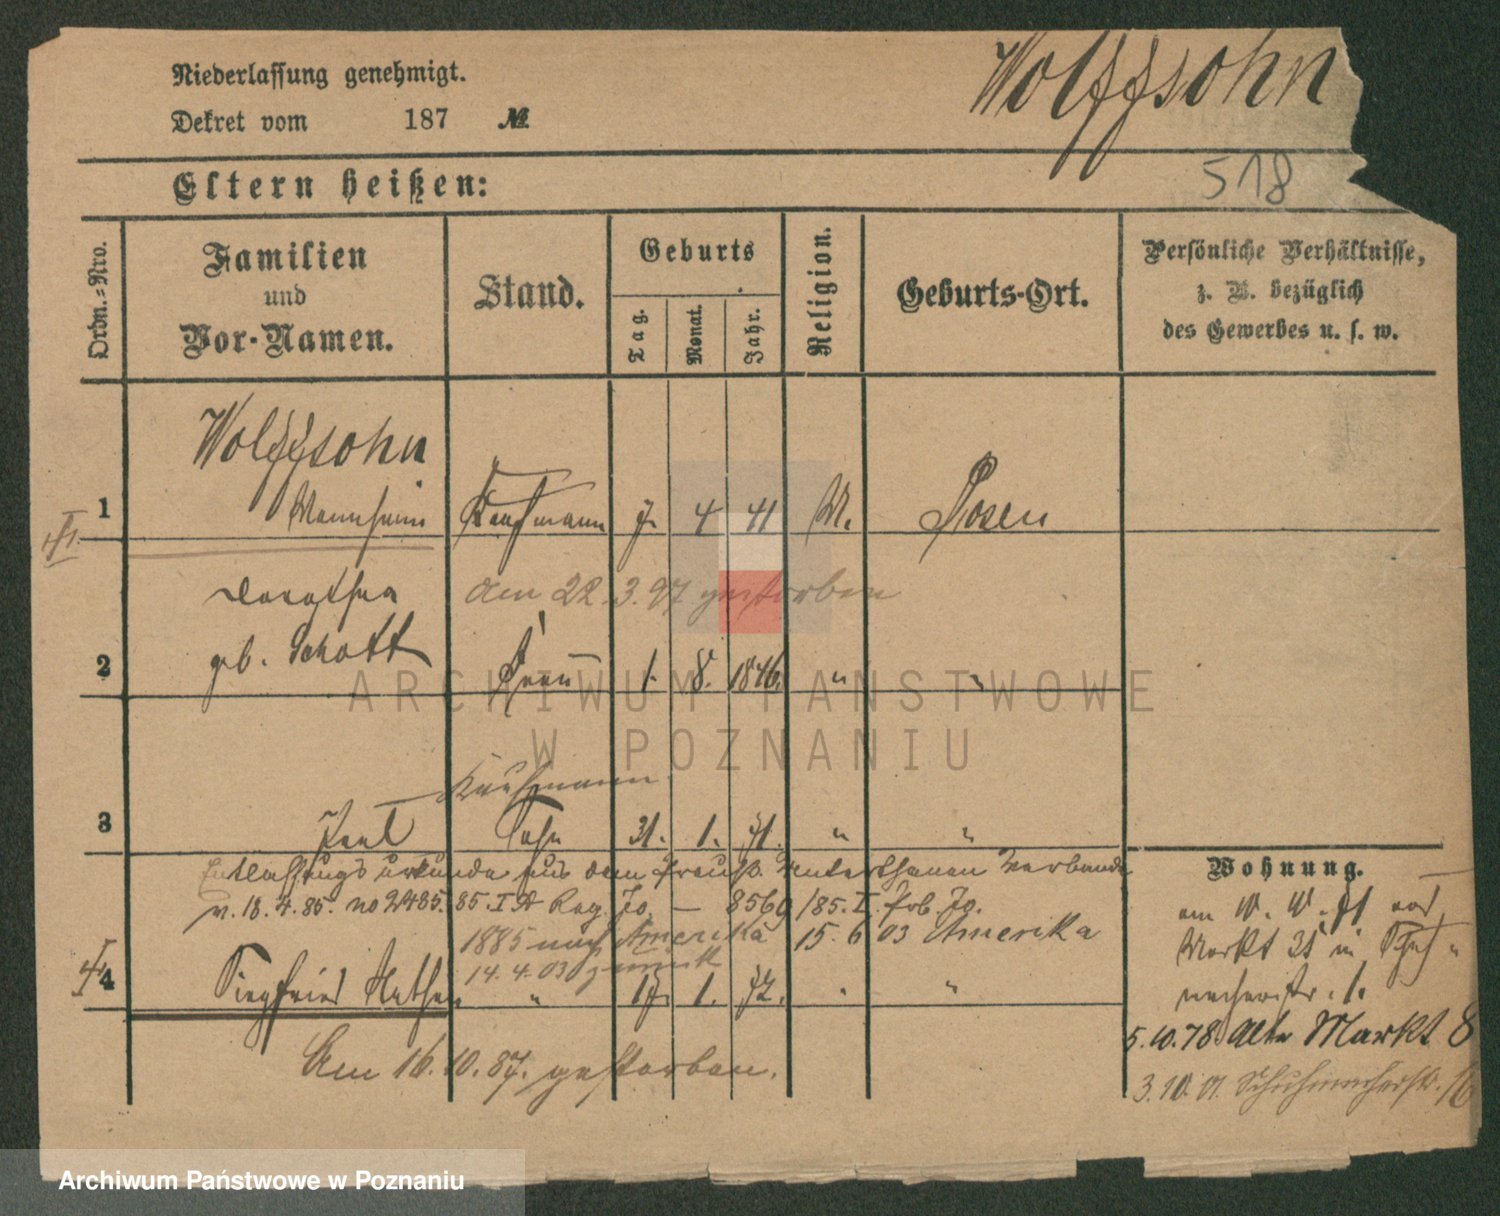 Niederlassung genehmigt.
Dekret vom 187 №
Wolffsohn
518
Eltern heißen:
Ordn.-Nro.
Familien
und
Vor-Namen.
Stand.
Geburts
Tag.
Monat.
Jahr.
Religion.
Geburts-Ort.
Persönliche Verhältnisse,
z. B. bezüglich
des Gewerbes u. s. w.
Wolffsohn
1 Mannheim Kaufmann 7. 4 41 M. Posen
Dorothea am 22.3.97 gestorben
2 geb. Schott Frau 1. 8. 1846. " "
Kaufmann
3 Paul Sohn 31. 1. 71. " "
Entlassungsurkunde aus dem Preuß. Unterthanen Verbande
v. 18.4.85. no 2485. 85. I A Reg. Jo. — 8569/85. I. Prb. Jo.
1885 nach Amerika 15. 6 03 Amerika
14. 4. 03 zurück
4 Siegfried Nathan " 17. 1. 72. " "
Am 16.10.87. gestorben.
Wohnung.
Markt
5.10.78 Alte Markt 8
3.10.91. Schuhmacherstr. 16
ARCHIWUM PAŃSTWOWE
W POZNANIU
Archiwum Państwowe w Poznaniu